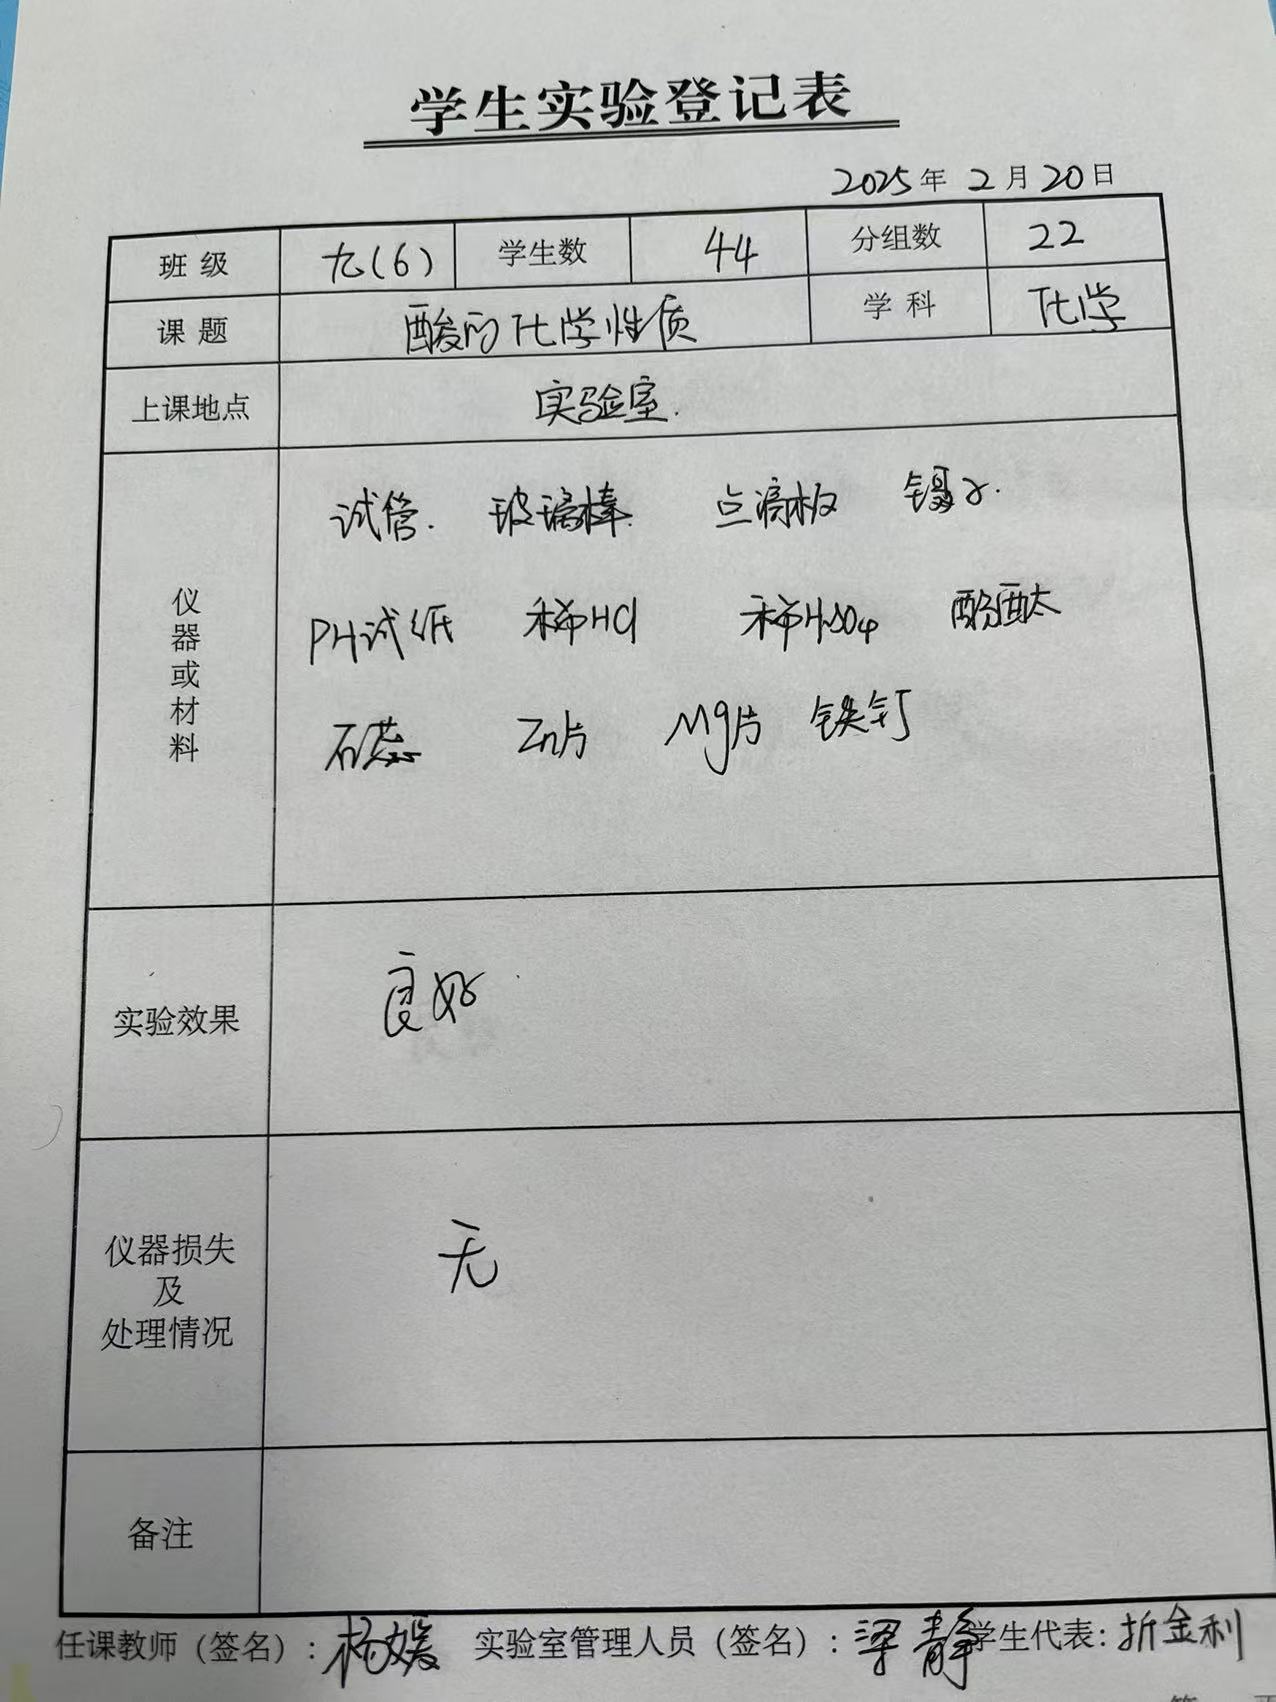 学生实验登记表
2025年 2月20日
班级 九(6) 学生数 44 分组数 22
课题 酸的化学性质 学科 化学
上课地点 实验室.
仪器或材料
试管. 玻璃棒. 点滴板 镊子.
PH试纸 稀HCl 稀H2SO4 酚酞
石蕊 Zn片 Mg片 铁钉
实验效果 良好
仪器损失
及
处理情况
无
备注
任课教师（签名）：杨媛 实验室管理人员（签名）：梁静 学生代表：折金利